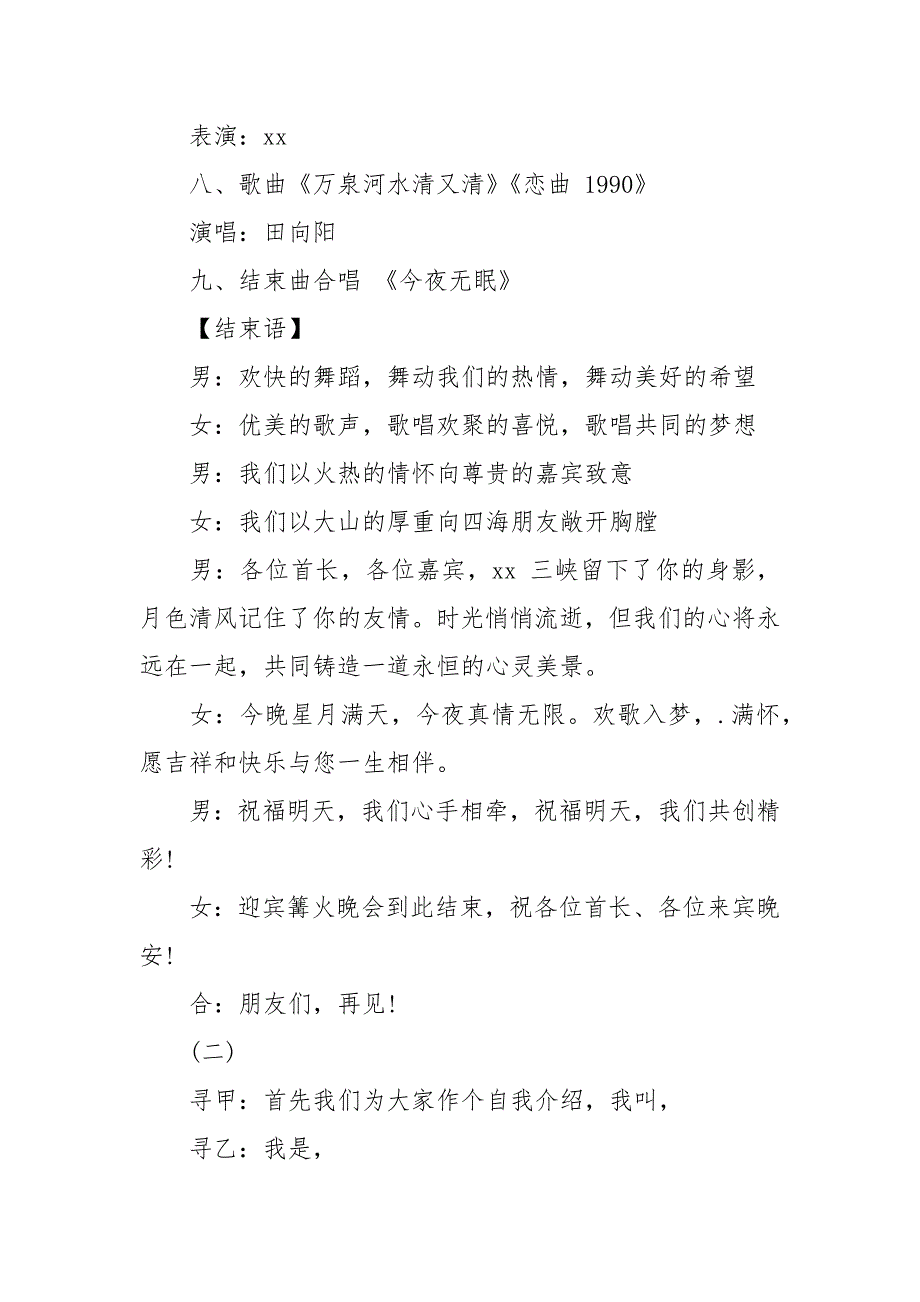 表演：xx
八、歌曲《万泉河水清又清》《恋曲 1990》
演唱：田向阳
九、结束曲合唱 《今夜无眠》
【结束语】
男：欢快的舞蹈，舞动我们的热情，舞动美好的希望
女：优美的歌声，歌唱欢聚的喜悦，歌唱共同的梦想
男：我们以火热的情怀向尊贵的嘉宾致意
女：我们以大山的厚重向四海朋友敞开胸膛
男：各位首长，各位嘉宾，xx 三峡留下了你的身影，
月色清风记住了你的友情。时光悄悄流逝，但我们的心将永
远在一起，共同铸造一道永恒的心灵美景。
女：今晚星月满天，今夜真情无限。欢歌入梦，.满怀，
愿吉祥和快乐与您一生相伴。
男：祝福明天，我们心手相牵，祝福明天，我们共创精
彩!
女：迎宾篝火晚会到此结束，祝各位首长、各位来宾晚
安!
合：朋友们，再见!
(二)
寻甲：首先我们为大家作个自我介绍，我叫，
寻乙：我是，